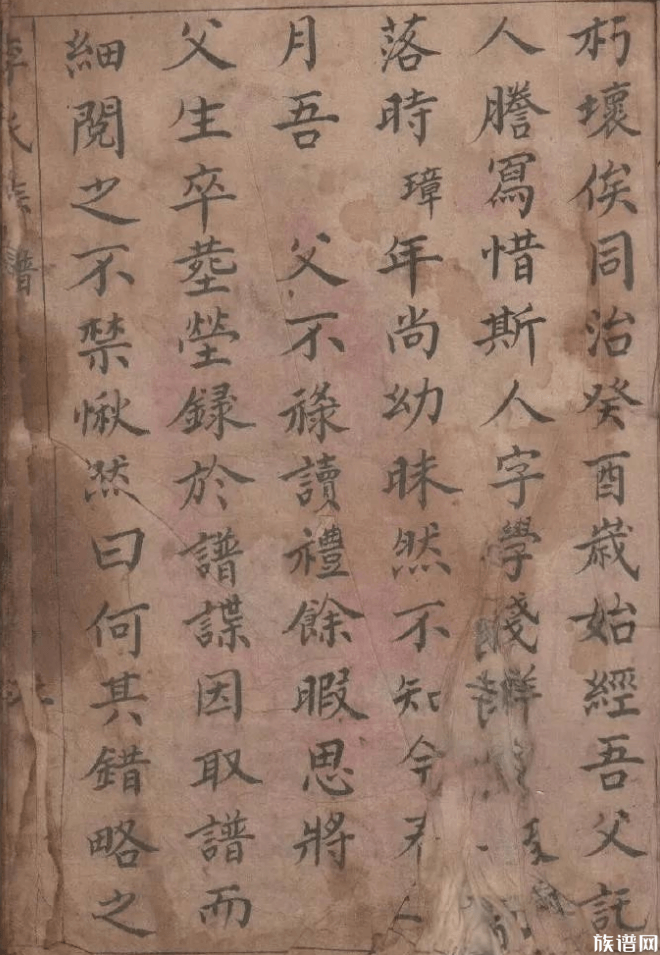 朽壞俟同治癸酉歲始經吾父託
人謄寫惜斯人字學淺
落時璋年尚幼昧然不知今
月吾 父不祿讀禮餘暇思將
父生卒塟塋録於譜諜因取譜而
細閱之不禁愀然曰何其錯略之
李氏族譜
族谱网